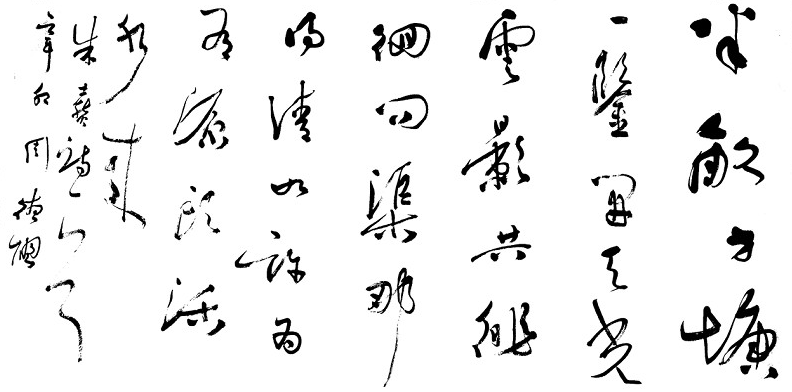 半畝方塘
一鑒開天光
雲影共徘
徊問渠那
得清如許為
有源頭活
水來
朱熹詩
辛卯周德